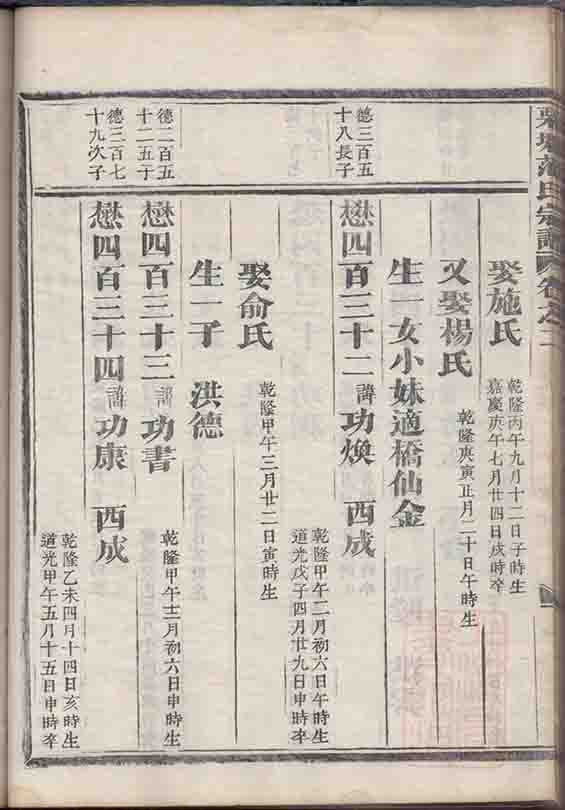 范氏宗譜 卷之二
娶施氏
乾隆丙午九月十二日子時生
嘉慶庚午七月廿四日戌時卒
又娶楊氏
乾隆庚寅正月二十日午時生
生一女小妹適橋仙金
德三百五
十八長子
懋四百三十二 諱 功煥 西成
乾隆甲午二月初六日午時生
道光戊子四月廿九日申時卒
娶俞氏
乾隆甲午三月廿二日寅時生
生一子 洪德
德二百五
十二五子
懋四百三十三 諱 功書
乾隆甲午十二月初六日申時生
德三百七
十九次子
懋四百三十四 諱 功康 西成
乾隆乙未四月十四日亥時生
道光甲午五月十五日申時卒